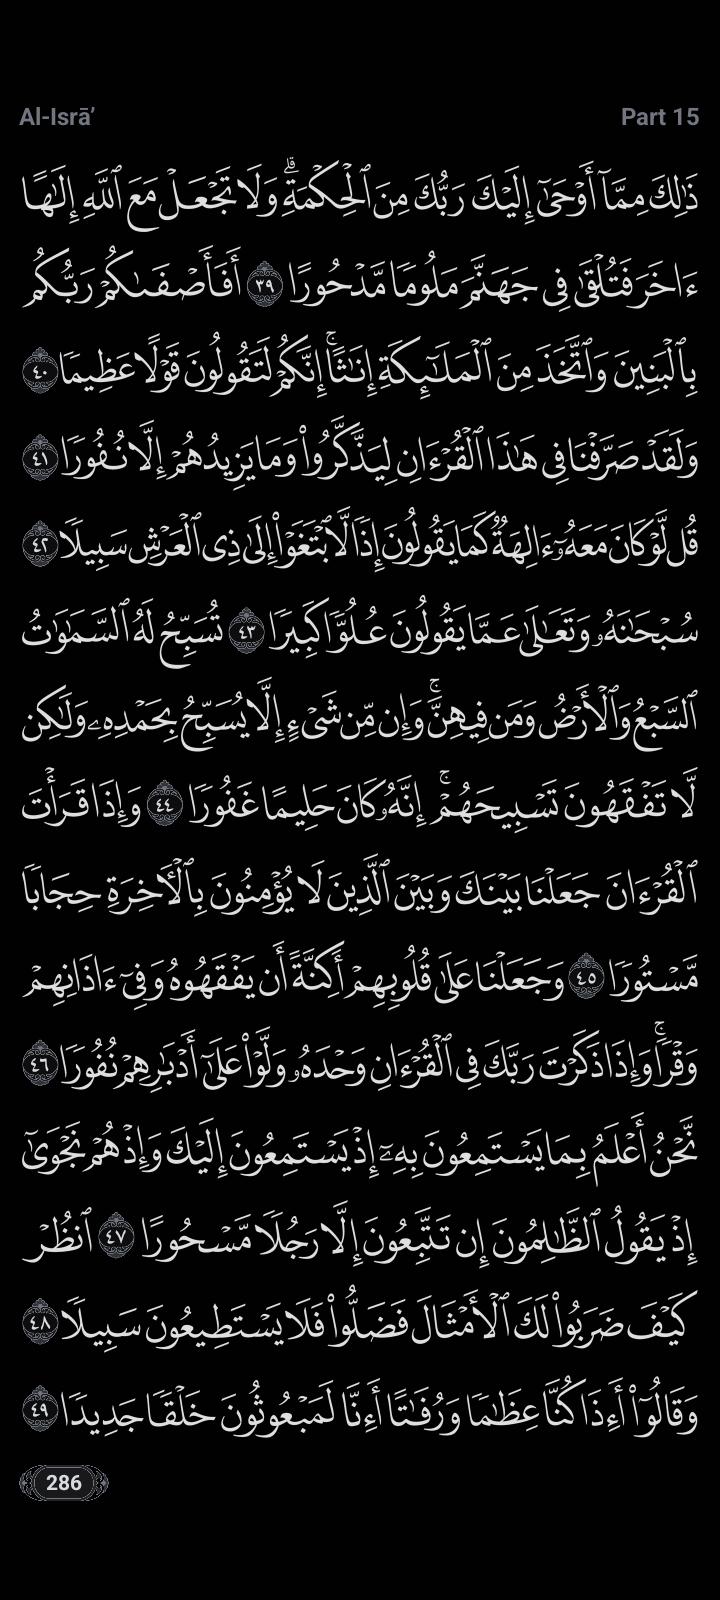 Al-Isrā’ Part 15
ذَٰلِكَ مِمَّآ أَوْحَىٰٓ إِلَيْكَ رَبُّكَ مِنَ ٱلْحِكْمَةِ ۗ وَلَا تَجْعَلْ مَعَ ٱللَّهِ إِلَـٰهًا
ءَاخَرَ فَتُلْقَىٰ فِى جَهَنَّمَ مَلُومًا مَّدْحُورًا ٣٩ أَفَأَصْفَىٰكُمْ رَبُّكُم
بِٱلْبَنِينَ وَٱتَّخَذَ مِنَ ٱلْمَلَـٰٓئِكَةِ إِنَـٰثًا ۚ إِنَّكُمْ لَتَقُولُونَ قَوْلًا عَظِيمًا ٤٠
وَلَقَدْ صَرَّفْنَا فِى هَـٰذَا ٱلْقُرْءَانِ لِيَذَّكَّرُوا۟ وَمَا يَزِيدُهُمْ إِلَّا نُفُورًا ٤١
قُل لَّوْ كَانَ مَعَهُۥٓ ءَالِهَةٌ كَمَا يَقُولُونَ إِذًا لَّٱبْتَغَوْا۟ إِلَىٰ ذِى ٱلْعَرْشِ سَبِيلًا ٤٢
سُبْحَـٰنَهُۥ وَتَعَـٰلَىٰ عَمَّا يَقُولُونَ عُلُوًّا كَبِيرًا ٤٣ تُسَبِّحُ لَهُ ٱلسَّمَـٰوَٰتُ
ٱلسَّبْعُ وَٱلْأَرْضُ وَمَن فِيهِنَّ ۚ وَإِن مِّن شَىْءٍ إِلَّا يُسَبِّحُ بِحَمْدِهِۦ وَلَـٰكِن
لَّا تَفْقَهُونَ تَسْبِيحَهُمْ ۗ إِنَّهُۥ كَانَ حَلِيمًا غَفُورًا ٤٤ وَإِذَا قَرَأْتَ
ٱلْقُرْءَانَ جَعَلْنَا بَيْنَكَ وَبَيْنَ ٱلَّذِينَ لَا يُؤْمِنُونَ بِٱلْـَٔاخِرَةِ حِجَابًا
مَّسْتُورًا ٤٥ وَجَعَلْنَا عَلَىٰ قُلُوبِهِمْ أَكِنَّةً أَن يَفْقَهُوهُ وَفِىٓ ءَاذَانِهِمْ
وَقْرًا ۚ وَإِذَا ذَكَرْتَ رَبَّكَ فِى ٱلْقُرْءَانِ وَحْدَهُۥ وَلَّوْا۟ عَلَىٰٓ أَدْبَـٰرِهِمْ نُفُورًا ٤٦
نَّحْنُ أَعْلَمُ بِمَا يَسْتَمِعُونَ بِهِۦٓ إِذْ يَسْتَمِعُونَ إِلَيْكَ وَإِذْ هُمْ نَجْوَىٰٓ
إِذْ يَقُولُ ٱلظَّـٰلِمُونَ إِن تَتَّبِعُونَ إِلَّا رَجُلًا مَّسْحُورًا ٤٧ ٱنظُرْ
كَيْفَ ضَرَبُوا۟ لَكَ ٱلْأَمْثَالَ فَضَلُّوا۟ فَلَا يَسْتَطِيعُونَ سَبِيلًا ٤٨
وَقَالُوٓا۟ أَءِذَا كُنَّا عِظَـٰمًا وَرُفَـٰتًا أَءِنَّا لَمَبْعُوثُونَ خَلْقًا جَدِيدًا ٤٩
286